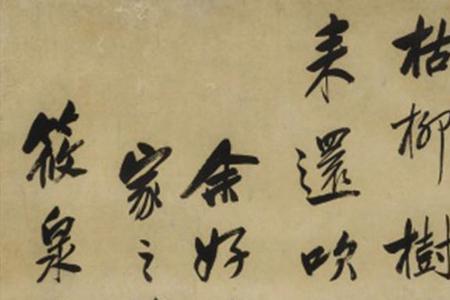 枯柳樹
来還吹
余好
家之
筱泉